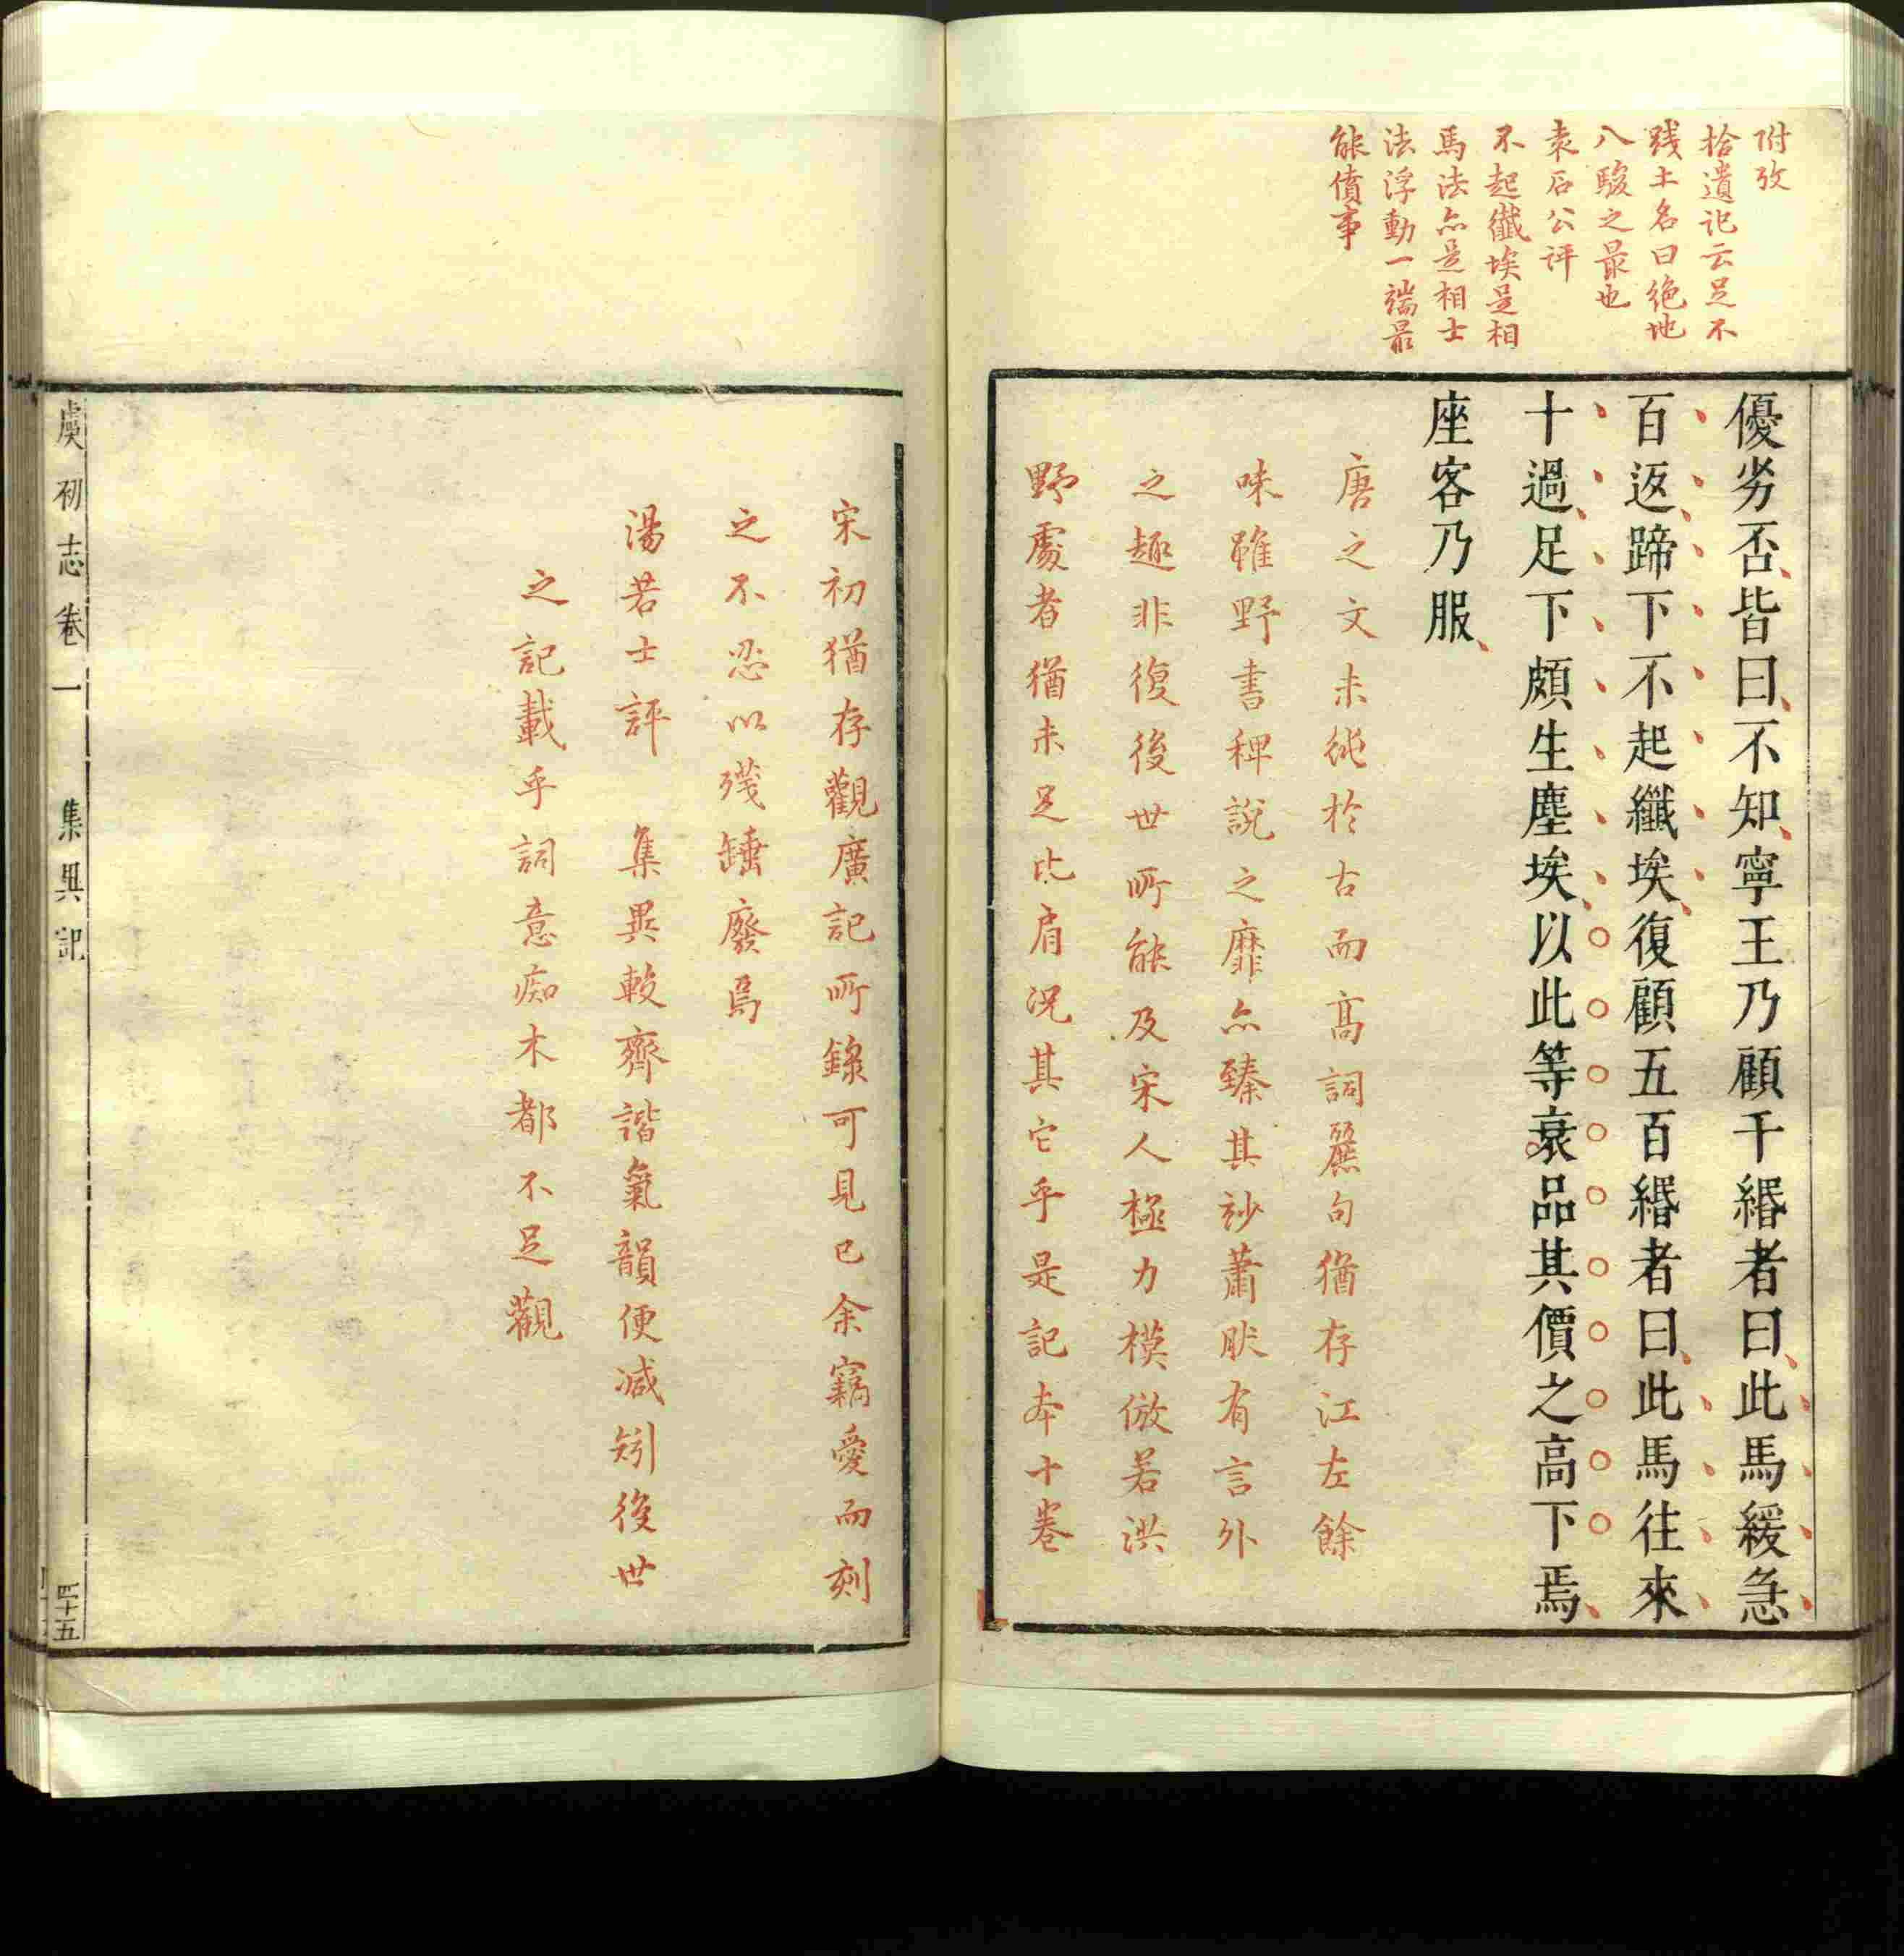 附攷
拾遺記云足不
踐土名曰絶地
八駿之最也
袁石公評
不起纖埃是相
馬法亦是相士
法浮動一端最
能僨事
優劣否皆曰不知寧王乃顧千緡者曰此馬緩急
百返蹄下不起纖埃復顧五百緡者曰此馬往來
十過足下頗生塵埃以此等衰品其價之高下焉
座客乃服
唐之文未純於古而高詞麗句猶存江左餘
味雖野書稗說之靡亦臻其玅蕭然有言外
之趣非復後世所能及宋人極力模倣若洪
野處者猶未足比肩况其它乎是記本十卷
宋初猶存觀廣記所錄可見已余竊愛而刻
之不忍以殘缺廢焉
湯若士評　集異較齊諧氣韻便減矧後世
之記載乎詞意痴木都不足觀
虞初志卷一　集異記　四十五